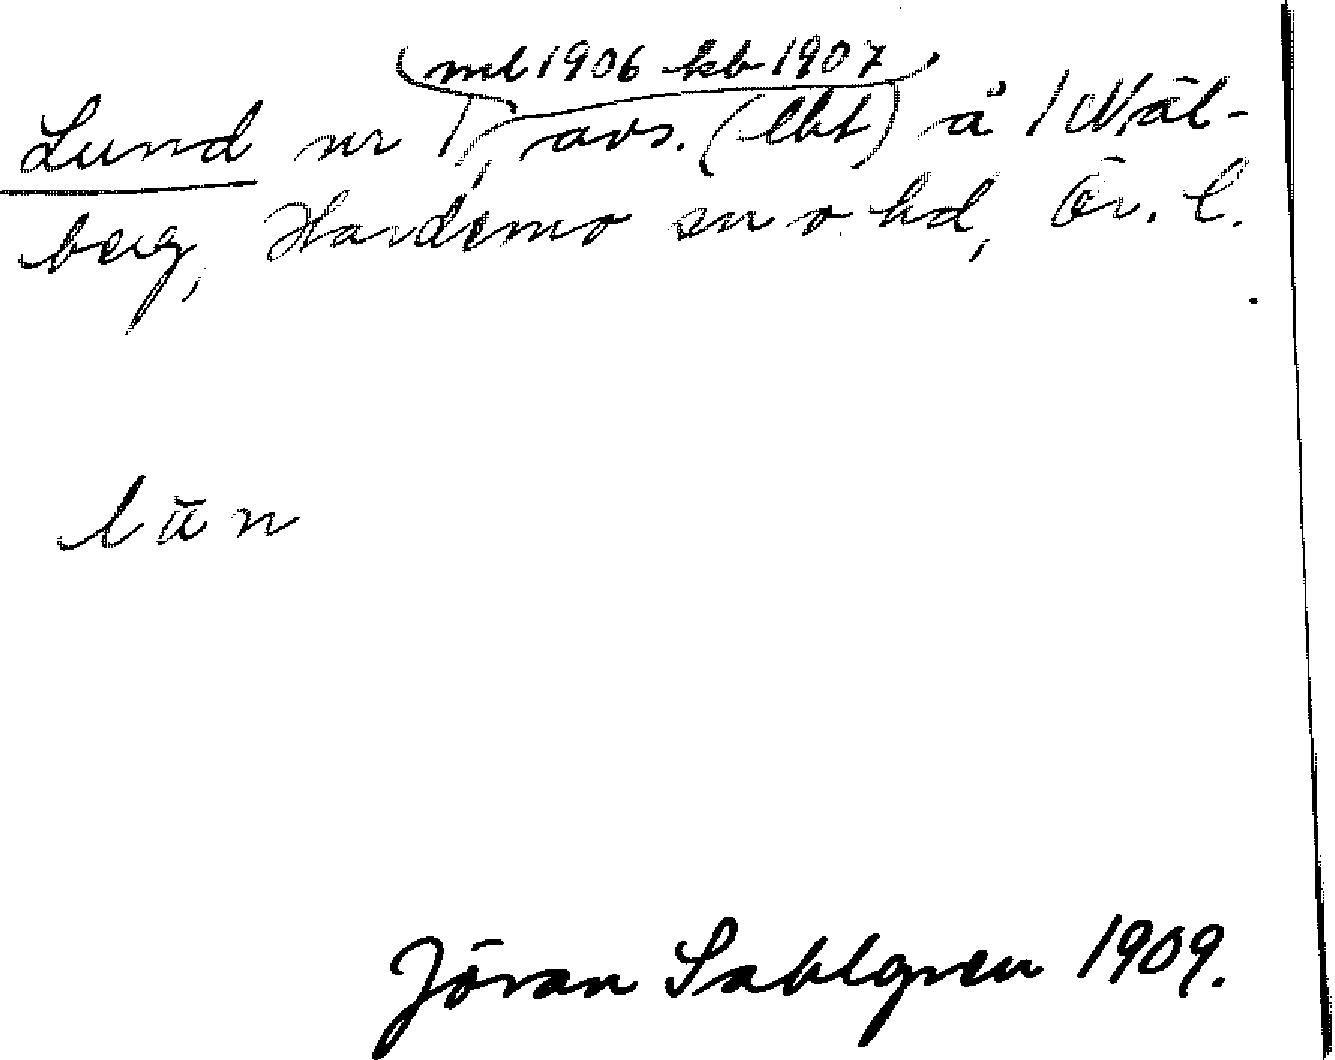 ml 1906 kb 1907,
Lund nr 1, avs. (lht) å 1 Näl-
berg, Hardemo sn o hd, Ör. l.
lūn
Jöran Sahlgren 1909.